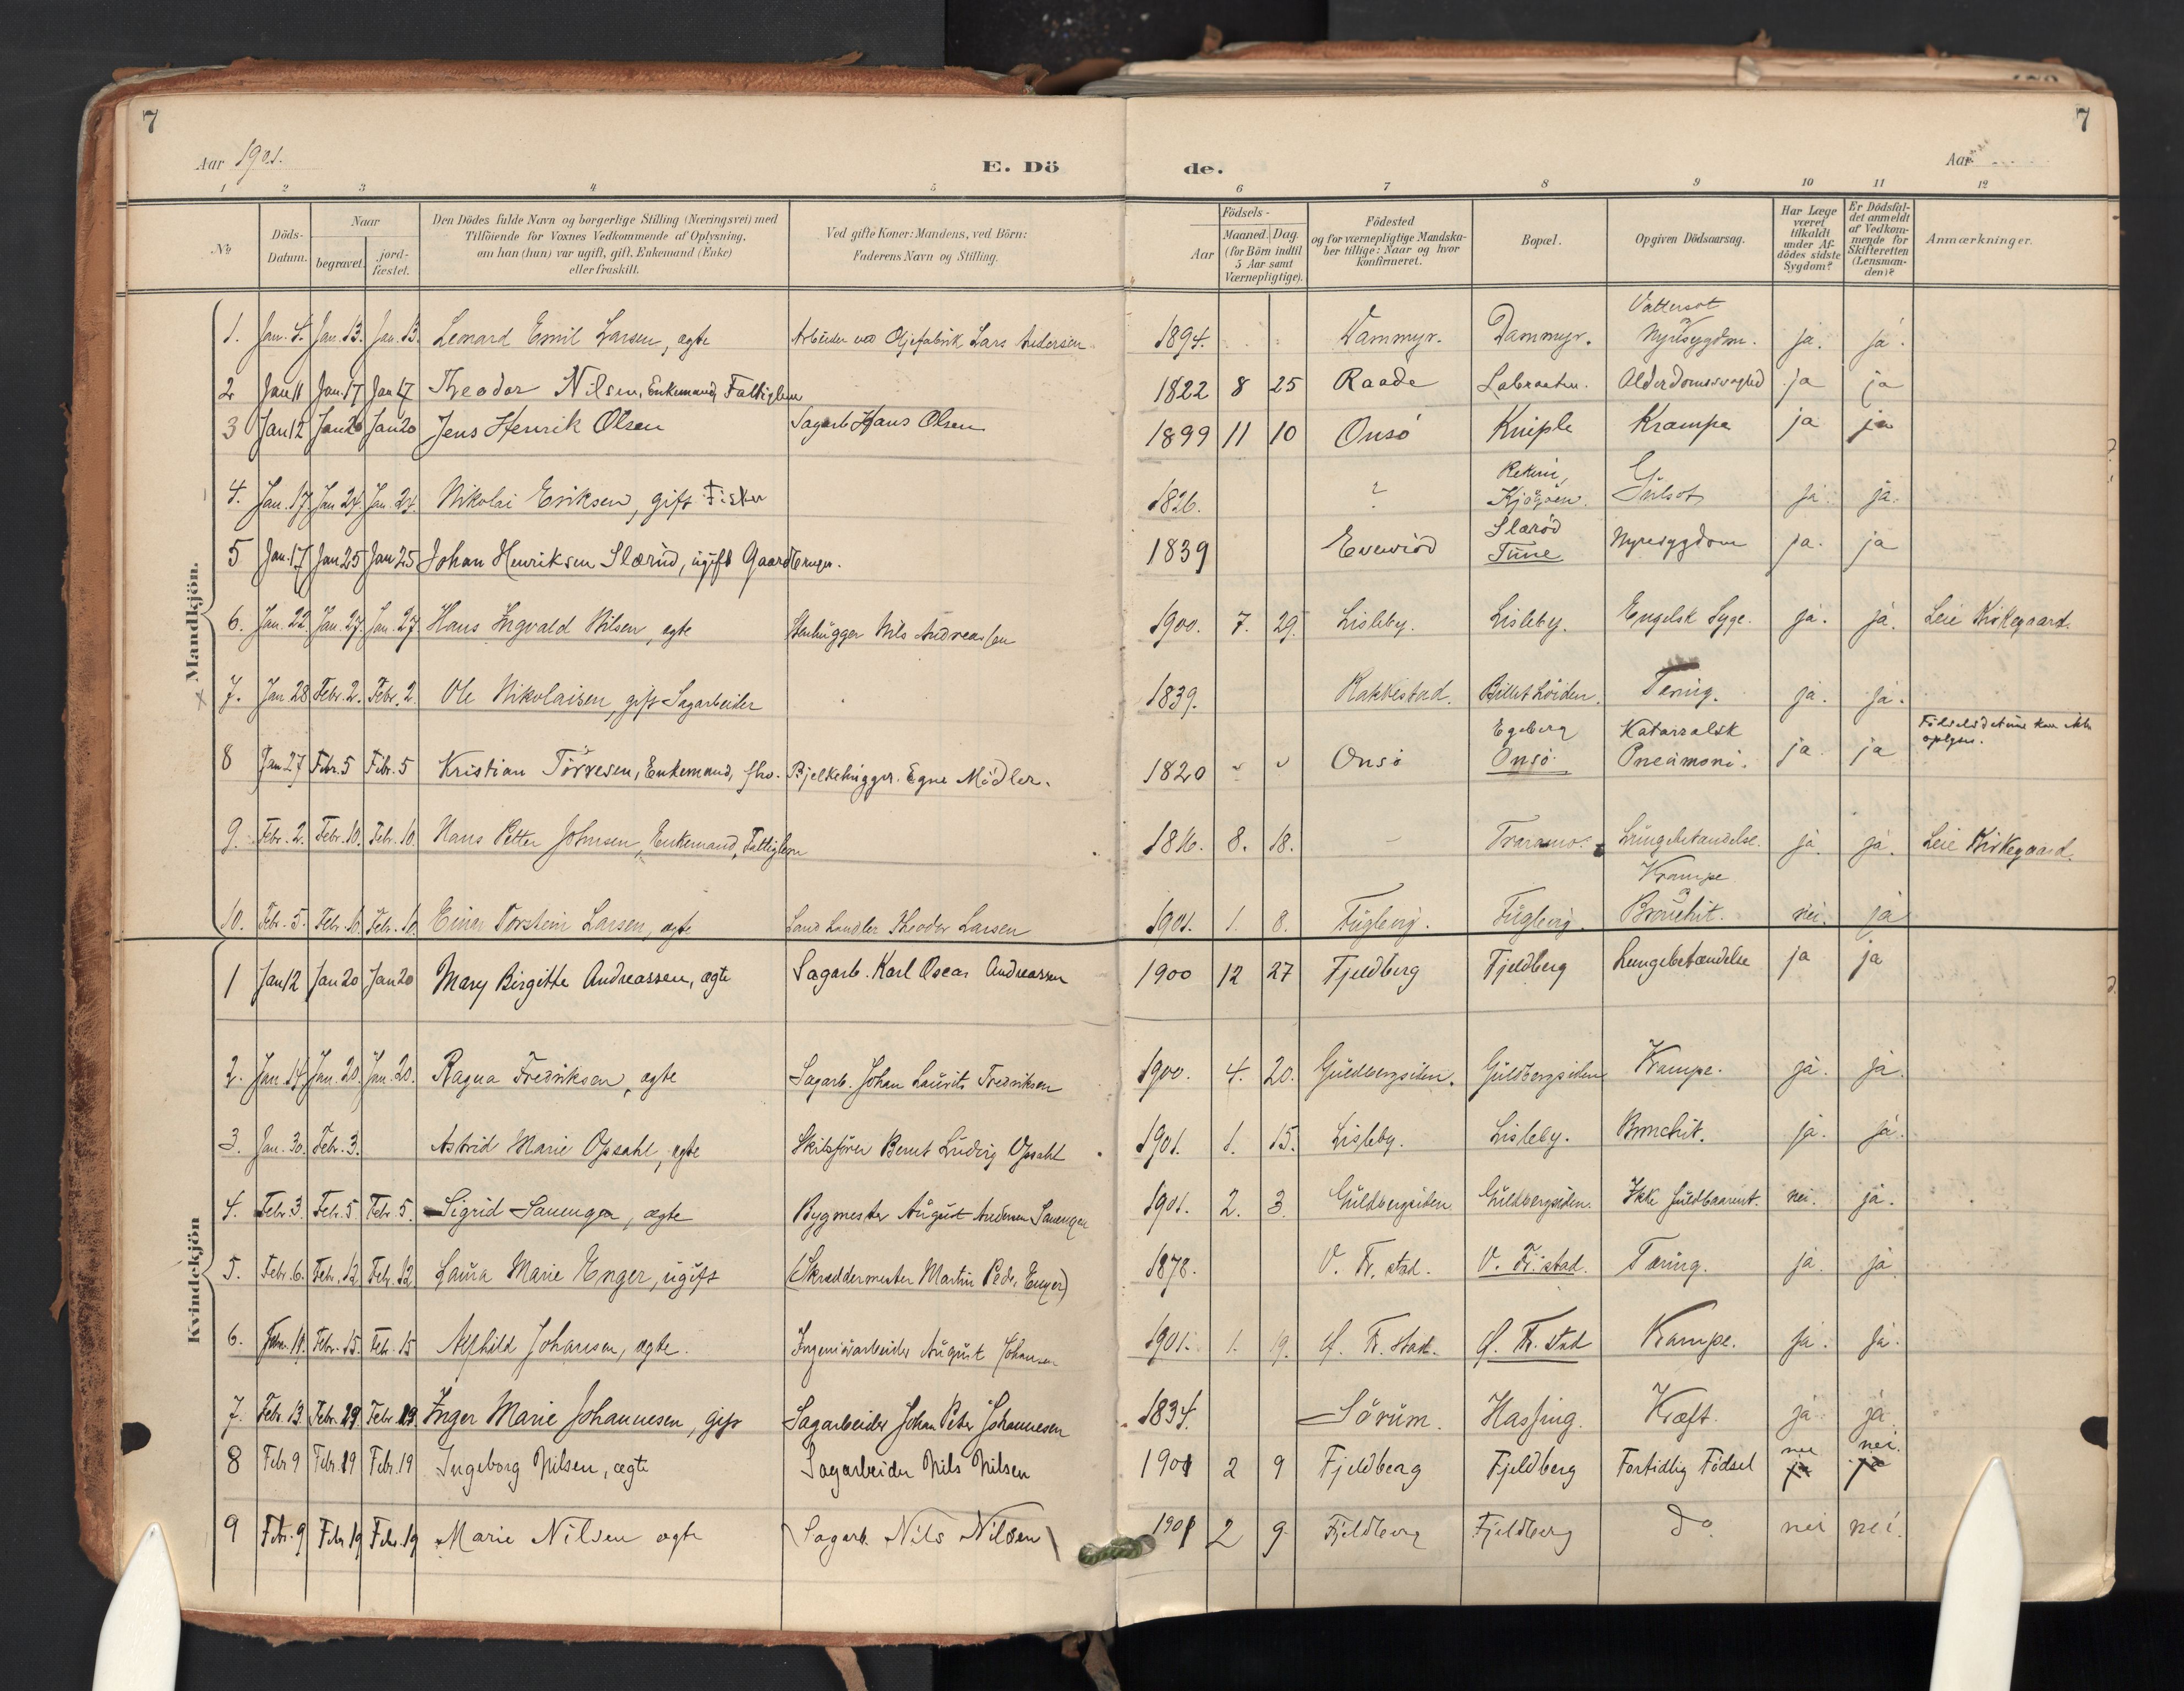 7
7
Aar 1901.
E. Dö
de.
Aar
1 2 3 4 5 6 7 8 9 10 11 12
No
Döds-Datum.
Naar
begravet.
jord-fæstet.
Den Dödes fulde Navn og borgerlige Stilling (Næringsvei) med
Tilföiende for Voxnes Vedkommende af Oplysning,
om han (hun) var ugift, gift, Enkemand (Enke)
eller fraskilt.
Ved gifte Koner: Mandens, ved Börn:
Faderens Navn og Stilling.
Födsels-
Aar
Maaned. Dag.
(for Börn indtil
5 Aar samt
Værnepligtige).
Födested
og for værnepligtige Mandska-
ber tillige: Naar og hvor
Konfirmeret.
Bopæl.
Opgiven Dödsaarsag.
Har Læge
været
tilkaldt
under Af-
dödes sidste
Sygdom?
Er Dödsfal-
det anmeldt
af Vedkom-
mende for
Skifteretten
(Lensman-
den)?
Anmærkninger.
Mandkjön.
1. Jan. 4. Jan. 13. Jan. 13. Leonard Emil Larsen, ægte Arbeider ved Oljefabrik Lars Andersen 1894. Dammyr. Dammyr. Vattersot og Nyresygdom. ja. ja.
2 Jan 11 Jan. 17 Jan 17 Theodor Nilsen, Enkemand, Fattiglem 1822 8 25 Raade Labraaten. Alderdomssvaghed ja ja
3 Jan 12 Jan 20 Jan 20 Jens Henrik Olsen Sagarb Hans Olsen 1899 11 10 Onsö Kniple Krampe ja ja
4. Jan. 17. Jan 24. Jan. 24. Nikolai Eriksen, gift Fisker 1826. ? Kjøköen. Gulsot ja. ja.
5 Jan. 17 Jan 25 Jan 25 Johan Henriksen Slærød, ugift Gaardbruger. 1839 Slærød Tune Nyresygdom ja. ja
6. Jan. 22. Jan. 27. Jan. 27 Hans Ingvald Nilsen, ægte Stenhugger Nils Andreassen 1900. 7. 29. Lisleby. Lisleby. Engelsk Syge. ja. ja. Leie Kirkegaard.
7. Jan 28 Febr. 2. Febr. 2 Ole Nikolaisen, gift Sagarbeider 1839. Rakkestad. Billet Löiden. Tæring. ja. ja.
8 Jan 27 Febr. 5 Febr. 5 Kristian Törresen, Enkemand, fhv. Bjelkehugger. Egne Midler. 1820 " " Onsö Egeberg Onsö. Katarralsk Pneumoni. ja ja Födselsdatum kan ikke oplyses.
9. Febr. 2. Febr. 10. Febr. 10. Hans Petter Johnsen, Enkemand, Fattiglem 1816. 8. 18. - Traramo. Lungebetændelse. ja. ja. Leie Kirkegaard.
10. Febr. 5. Febr. 10. Febr. 10. Einar Torstein Larsen, ægte Landhandler Theodor Larsen 1901. 1. 8. Fuglevig. Fuglevig. Krampe og Bronchit. nei. ja
Kvindekjön
1 Jan 12 Jan 20 Jan 20 Mary Birgitte Andreassen, ægte Sagarb. Karl Oscar Andreassen 1900 12 27 Fjeldberg Fjeldberg Lungebetændelse ja ja
2. Jan. 14. Jan. 20. Jan. 20. Ragna Fredriksen, ægte Sagarb. Johan Laurits Fredriksen 1900. 4. 20. Guldbergsiden. Guldbergsiden Krampe. ja. ja.
3. Jan. 30. Febr. 3. Astrid Marie Opsahl, ægte Skibsförer Bernt Ludvig Opsahl 1901. 1. 15. Lisleby. Lisleby. Bronchit. ja. ja.
4. Febr. 3. Febr. 5 Febr. 5. Sigrid Sauengen, ægte Bygmester August Andersen Sauengen 1901. 2. 3. Guldbergsiden. Guldbergsiden. Ikke fuldbaarent. nei. ja.
5. Febr. 6. Febr. 12. Febr. 12. Laura Marie Enger, ugift (Skræddermester Martin Peder Enger) 1878. V. Fr. stad. V. Fr. stad. Tæring. ja. ja
6. Febr. 11. Febr. 15. Febr. 15 Alfhild Johansen, ægte. Ingeniörarbeider August Johansen 1901. 1. 19. Ø. Fr. stad. Ø. Fr. stad Krampe. ja. ja.
7. Febr. 13. Febr. 19. Febr. 19. Inger Marie Johannesen, gift Sagarbeider Johan Peter Johannesen 1834. Sörum. Hassing. Kræft. ja. ja.
8 Febr 9 Febr. 19 Febr. 19 Ingeborg Nilsen, ægte Sagarbeider Nils Nilsen 1901 2 9 Fjeldberg Fjeldberg Fortidlig Födsel nei ja nei. ja
9 Febr. 9 Febr 19 Febr. 19 Marie Nilsen ægte (Sagarb. Nils Nilsen) 1901 2 9 Fjeldberg Fjeldberg Do nei nei.